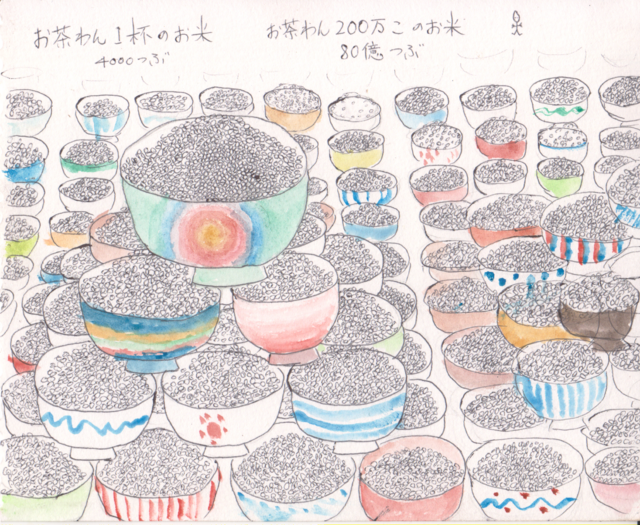 お茶わん1杯のお米
4000つぶ
お茶わん200万このお米
80億つぶ